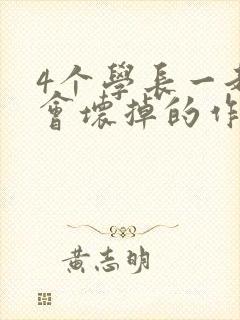 4个學長一
會壞掉的作
黃志明